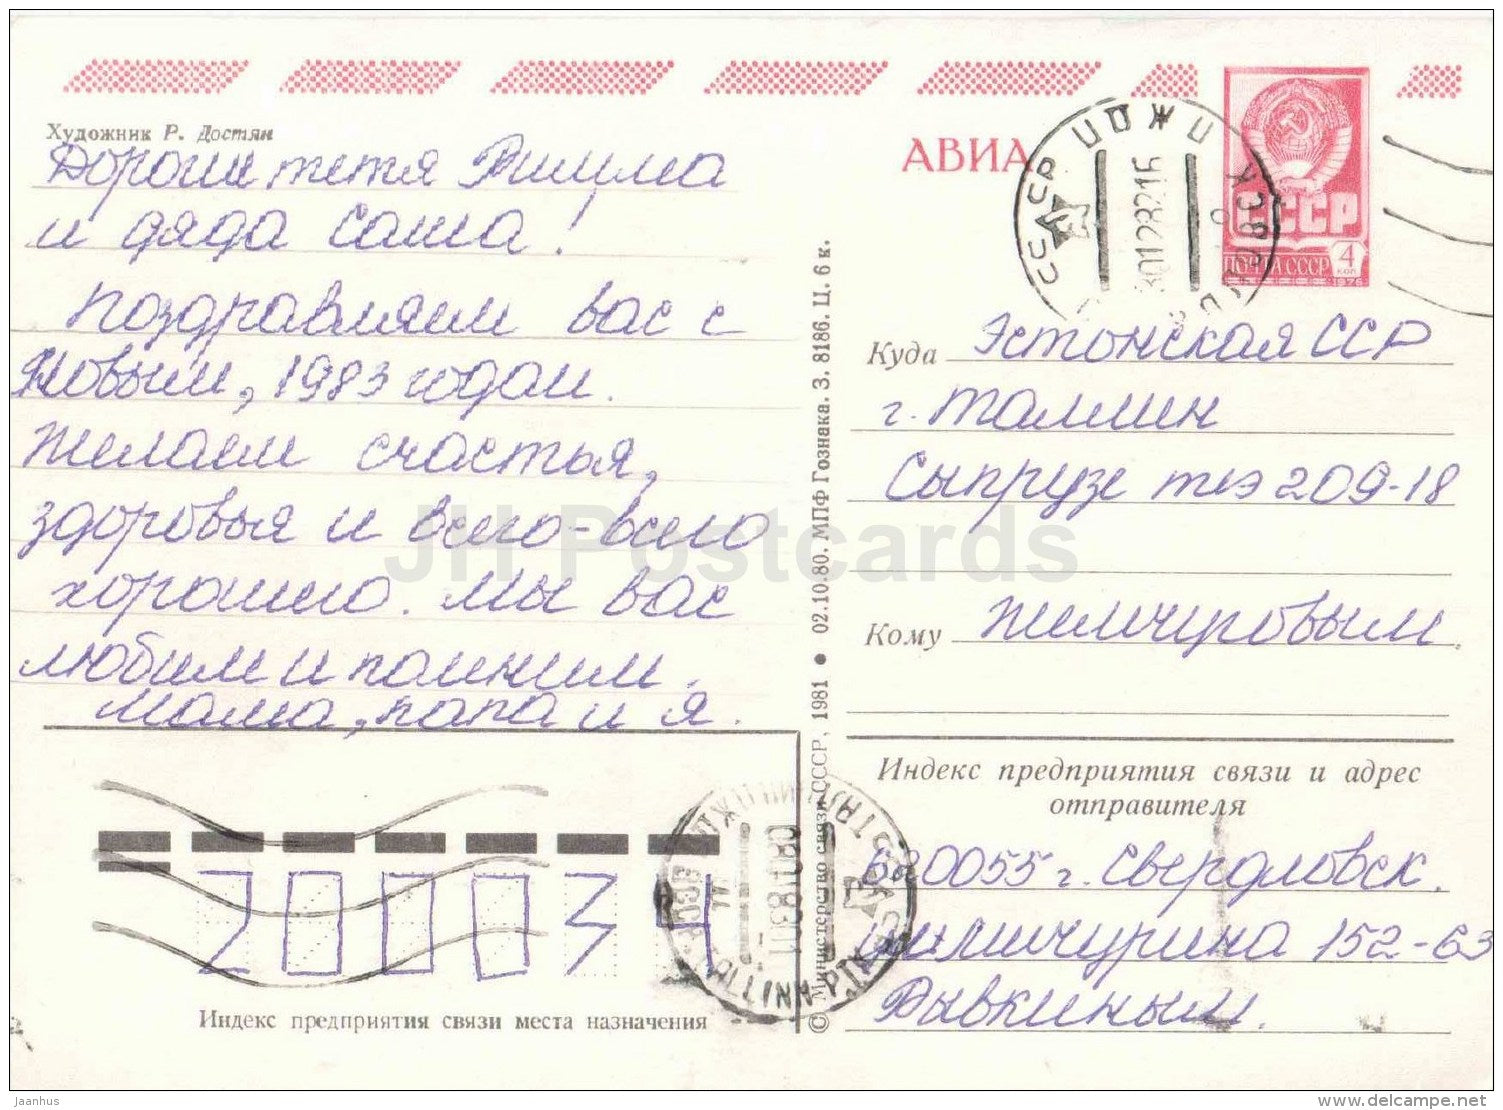 Художник Р. Достян
АВИА
СССР
ПОЧТА СССР
4
коп
1976
Дороши тетя Римма
и дядя Саша!
Поздравляем вас с
Новым, 1983 годом.
Желаем счастья,
здоровья и всего-всего
хорошего. Мы вас
любим и помним.
Мама, папа и я.
Куда Эстонская ССР
г. Таллин
Сыпрузе теэ 209-18
Кому Жемчуговым.
Индекс предприятия связи и адрес
отправителя
620055 г. Свердловск.
Мичурина 152-63
Рывкиным.
200034
Индекс предприятия связи места назначения
© Министерство связи СССР, 1981 • 02.10.80. МПФ Гознака. З. 8186. Ц. 6 к.
JH Postcards
Jaanhus
http://www.delcampe.net